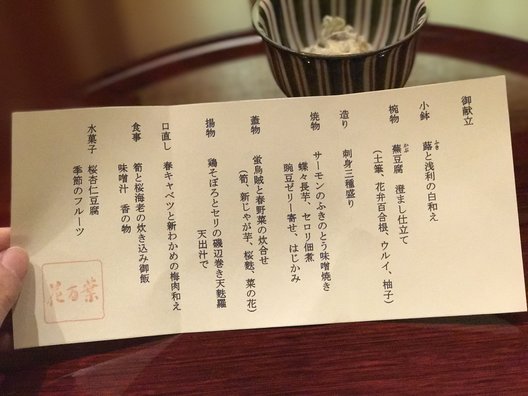 御献立
小鉢 蕗と浅利の白和え
ふき
椀物 蕪豆腐 澄まし仕立て
かぶ
(土筆、花弁百合根、ウルイ、柚子)
造り 刺身三種盛り
焼物 サーモンのふきのとう味噌焼き
蝶々長芋、セロリ佃煮
豌豆ゼリー寄せ、はじかみ
蓋物 蛍烏賊と春野菜の炊合せ
(筍、新じゃが芋、桜麩、菜の花)
揚物 鶏そぼろとセリの磯辺巻き天麩羅
天出汁で
口直し 春キャベツと新わかめの梅肉和え
食事 筍と桜海老の炊き込み御飯
味噌汁 香の物
水菓子 桜杏仁豆腐
季節のフルーツ
花百葉